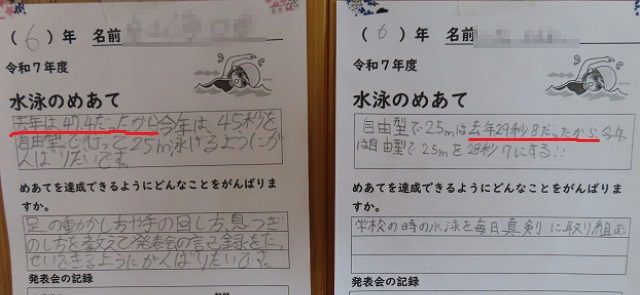 (6)年 名前
令和7年度
水泳のめあて
去年は47.4だったから今年は、45秒を
自由型で行って25m泳げるようにが
んばりたいです。
めあてを達成できるようにどんなことをがんばりま
すか。
足の動かし方や手の回し方、息つぎ
のし方を考えて発表会の記録をたっ
せいできるようにがんばりたいです。
発表会の記録
(6)年 名前
令和7年度
水泳のめあて
自由型で25mは去年29秒8だったから今年
は自由型で25mを28秒7にする!!
めあてを達成できるようにどんなことをがんばりま
すか。
学校の時の水泳を毎日真剣に取り組む
発表会の記録